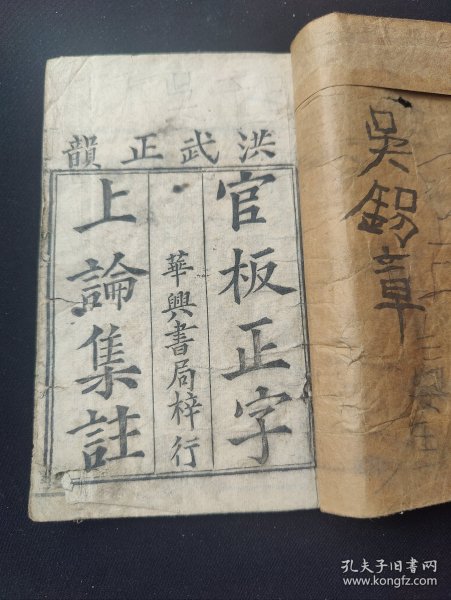 洪武正韻
官板正字
華興書局梓行
上論集註
吳錫章
孔夫子旧书网
www.kongfz.com